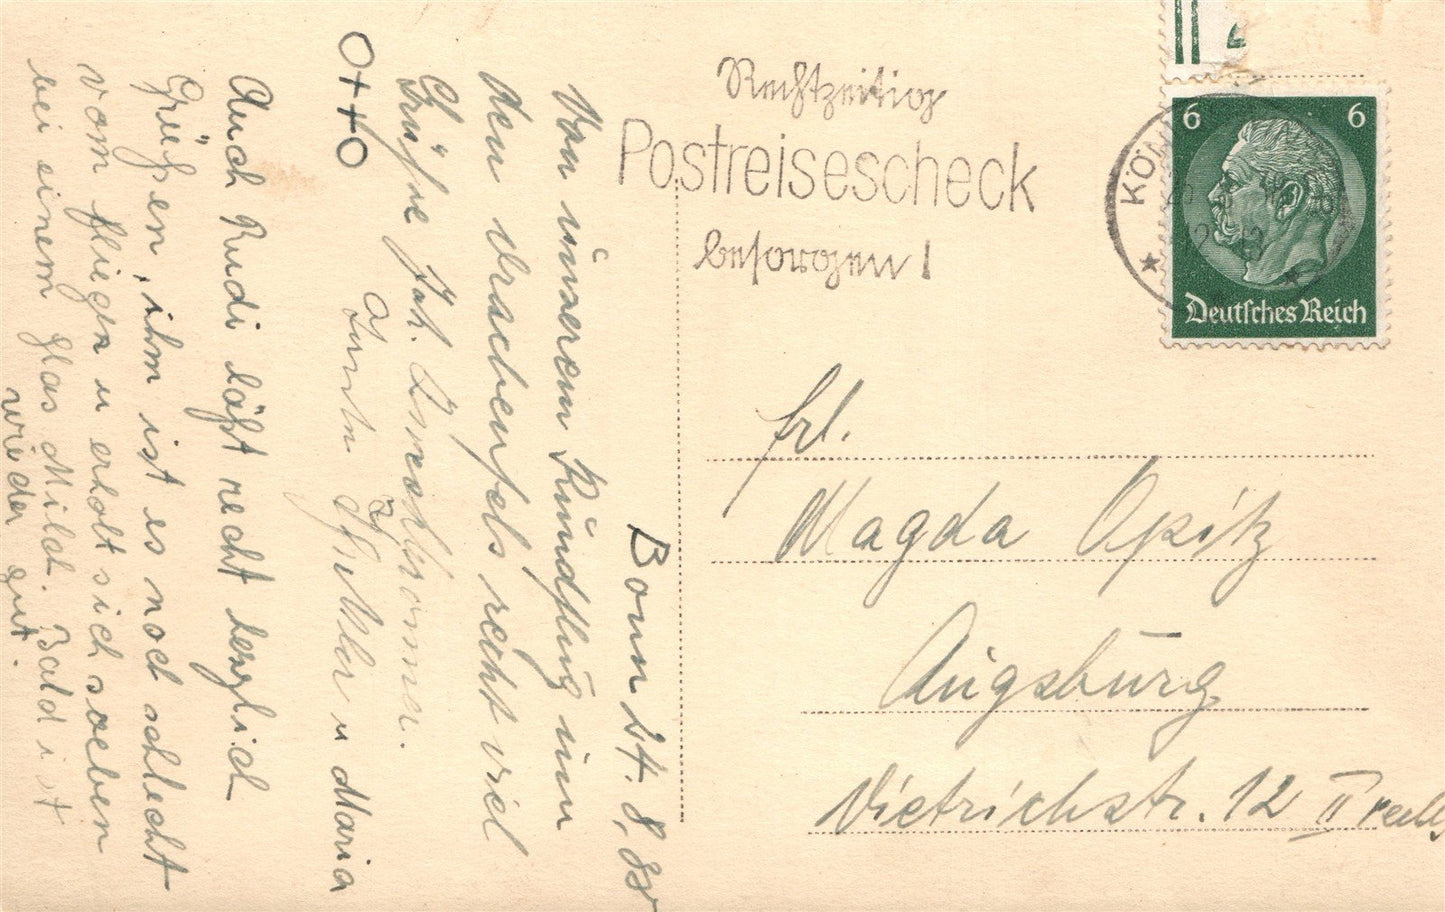 Bonn 24. 8. 38
Von unserem Rundflug um
den Drachenfels recht viel
Grüße
Otto
u Maria
Auch Rudi läßt recht herzlich
Grüßen, ihm ist es noch schlecht
vom fliegen u erholt sich soeben
bei einem Glas Milch. Bald ist
wieder gut.
Rechtzeitig
Postreisescheck
besorgen!
KÖ
6 6
Deutsches Reich
Frl.
Magda Opitz
Augsburg
Dietrichstr. 12 II rechts